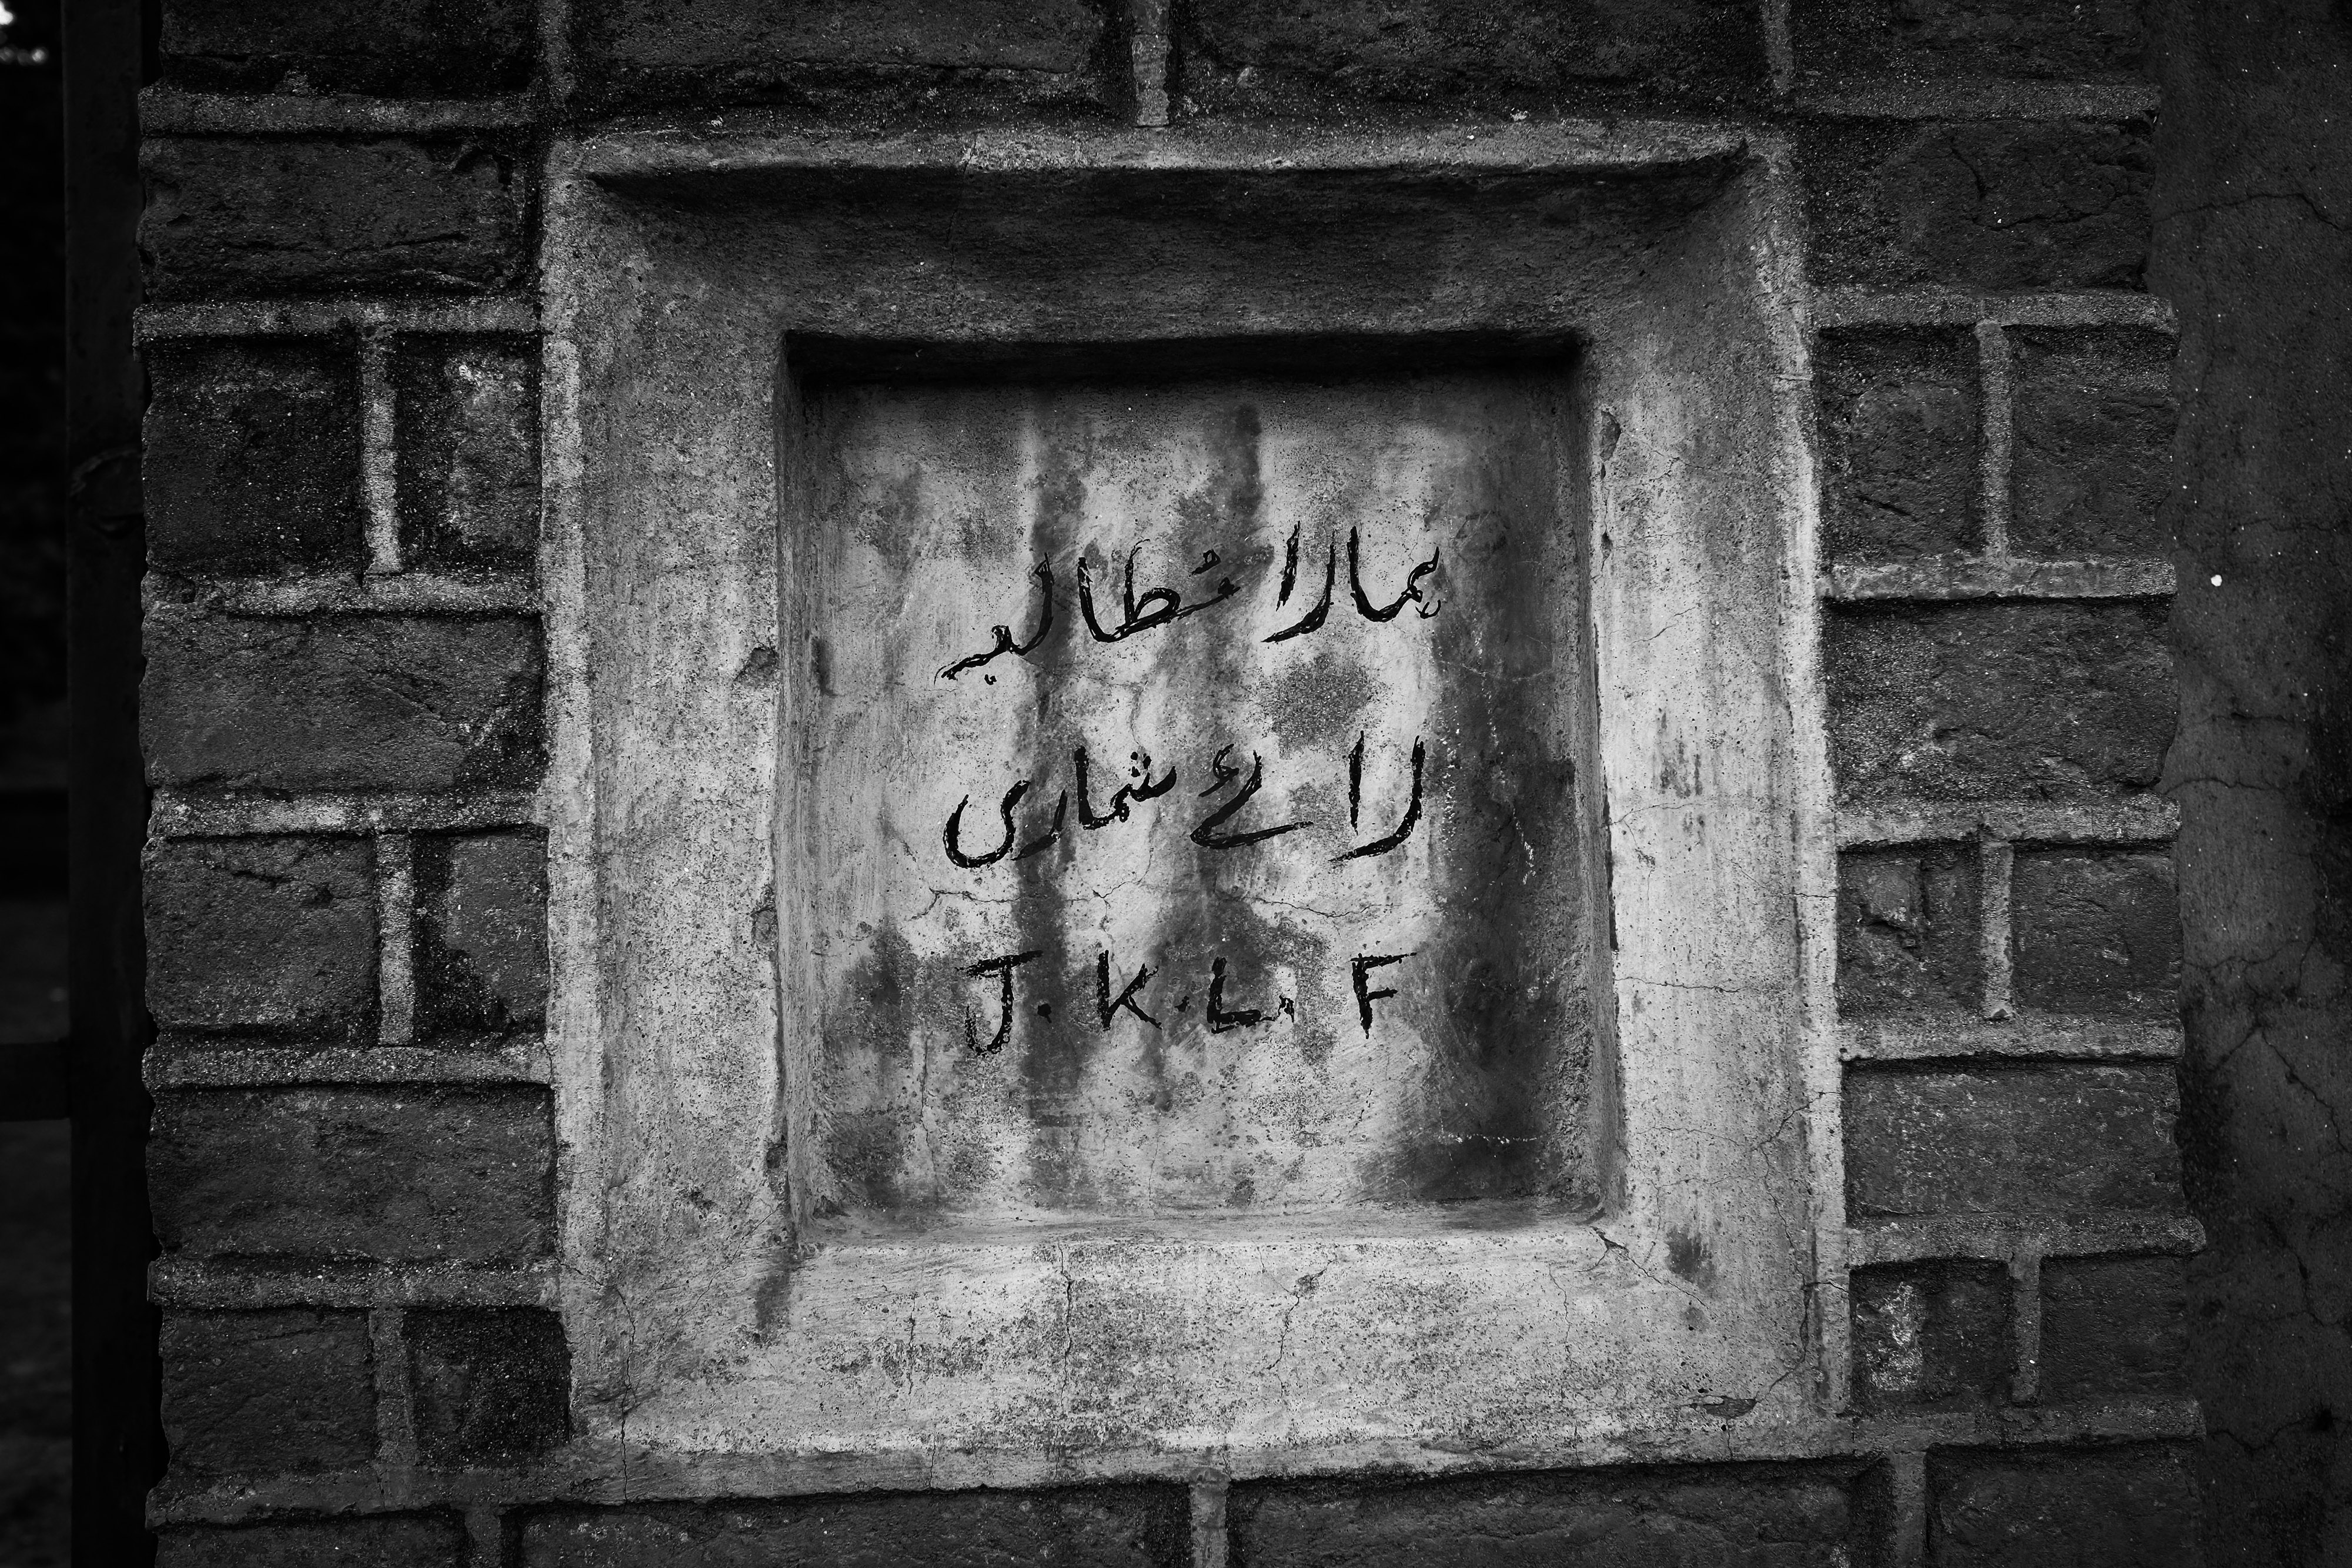 ہمارا مُطالبہ
رائے شماری
J.K.L.F